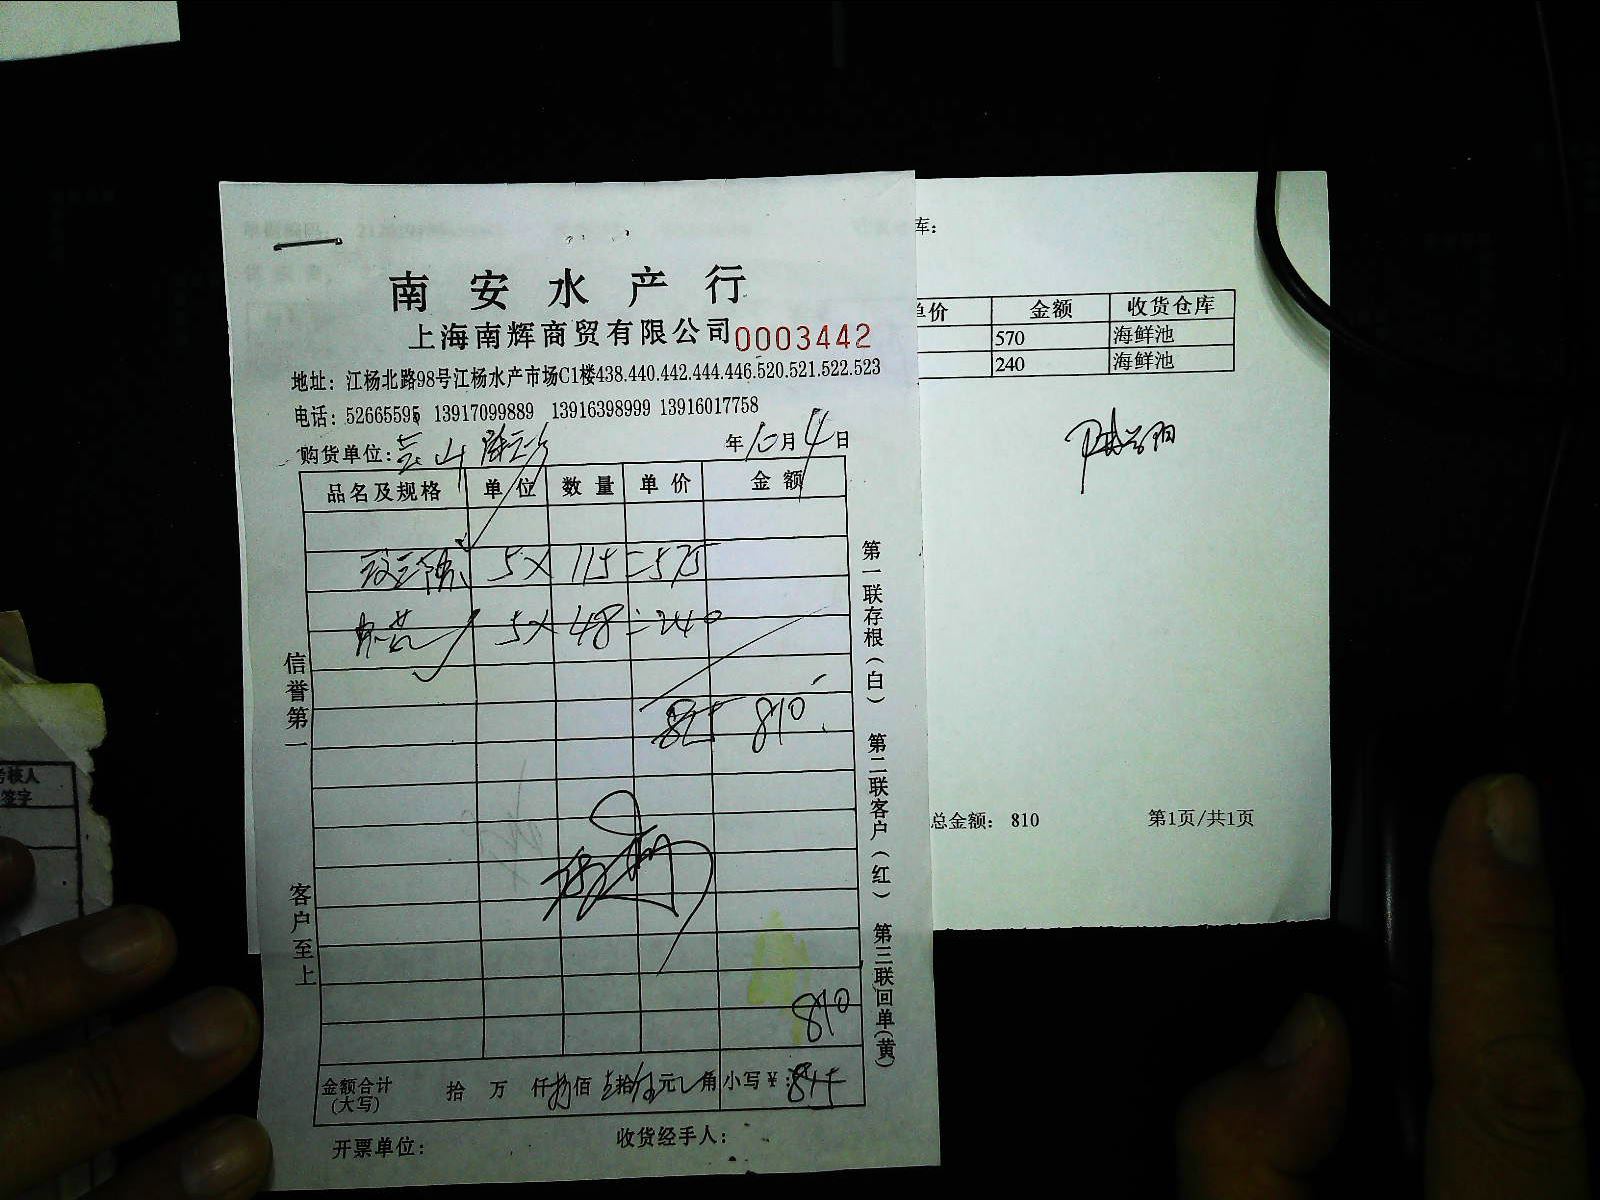 南安水产行
上海南辉商贸有限公司 0003442
地址：江杨北路98号江杨水产市场C1楼438.440.442.444.446.520.521.522.523
电话：52665595 13917099889 13916398999 13916017758
购货单位： 年10月4日
品名及规格 单位 数量 单价 金额
5× 115=575
5× 48=240
815 810
810
金额合计(大写) 拾 万 仟捌佰壹拾伍元 角 小写￥:815
开票单位： 收货经手人：
信誉第一
客户至上
第一联存根(白) 第二联客户(红) 第三联回单(黄)
库：
单价 金额 收货仓库
570 海鲜池
240 海鲜池
总金额： 810 第1页/共1页
考核人
签字